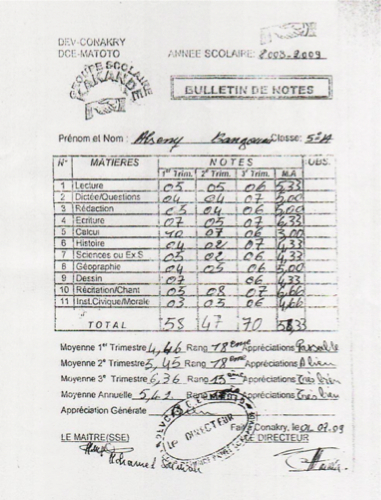 DEV-CONAKRY
DCE-MATOTO
ANNEE SCOLAIRE: 2008-2009
GROUPE SCOLAIRE
KAKANDE
BULLETIN DE NOTES
Prénom et Nom : Alseny Bangoura Classe: 5è A
N° MATIERES NOTES OBS.
1er Trim. 2è Trim. 3è Trim. M.A
1 Lecture 05 05 06 5,33
2 Dictée/Questions 04 04 07 5,00
3 Rédaction 05 04 06 5,00
4 Ecriture 07 05 07 6,33
5 Calcul 10 07 06
6 Histoire 04 02 07 4,33
7 Sciences ou Ex.S 02 05 06 4,33
8 Géographie 04 05 06 5,00
9 Dessin 07 06 4,33
10 Récitation/Chant 05 08 07 6,66
11 Inst.Civique/Morale 03 05 06 4,66
TOTAL 58 47 70
Moyenne 1er Trimestre 4,46 Rang 18ème Appréciations Passable
Moyenne 2è Trimestre 5,45 Rang 18ème Appréciations A.bien
Moyenne 3è Trimestre 6,36 Rang 15ème Appréciations Très bien
Moyenne Annuelle 5,42 Appréciations Très bien
Appréciation Générale
Conakry, le 02.07.09
LE MAITRE(SSE) LE DIRECTEUR
LE DIRECTEUR
Mohamed